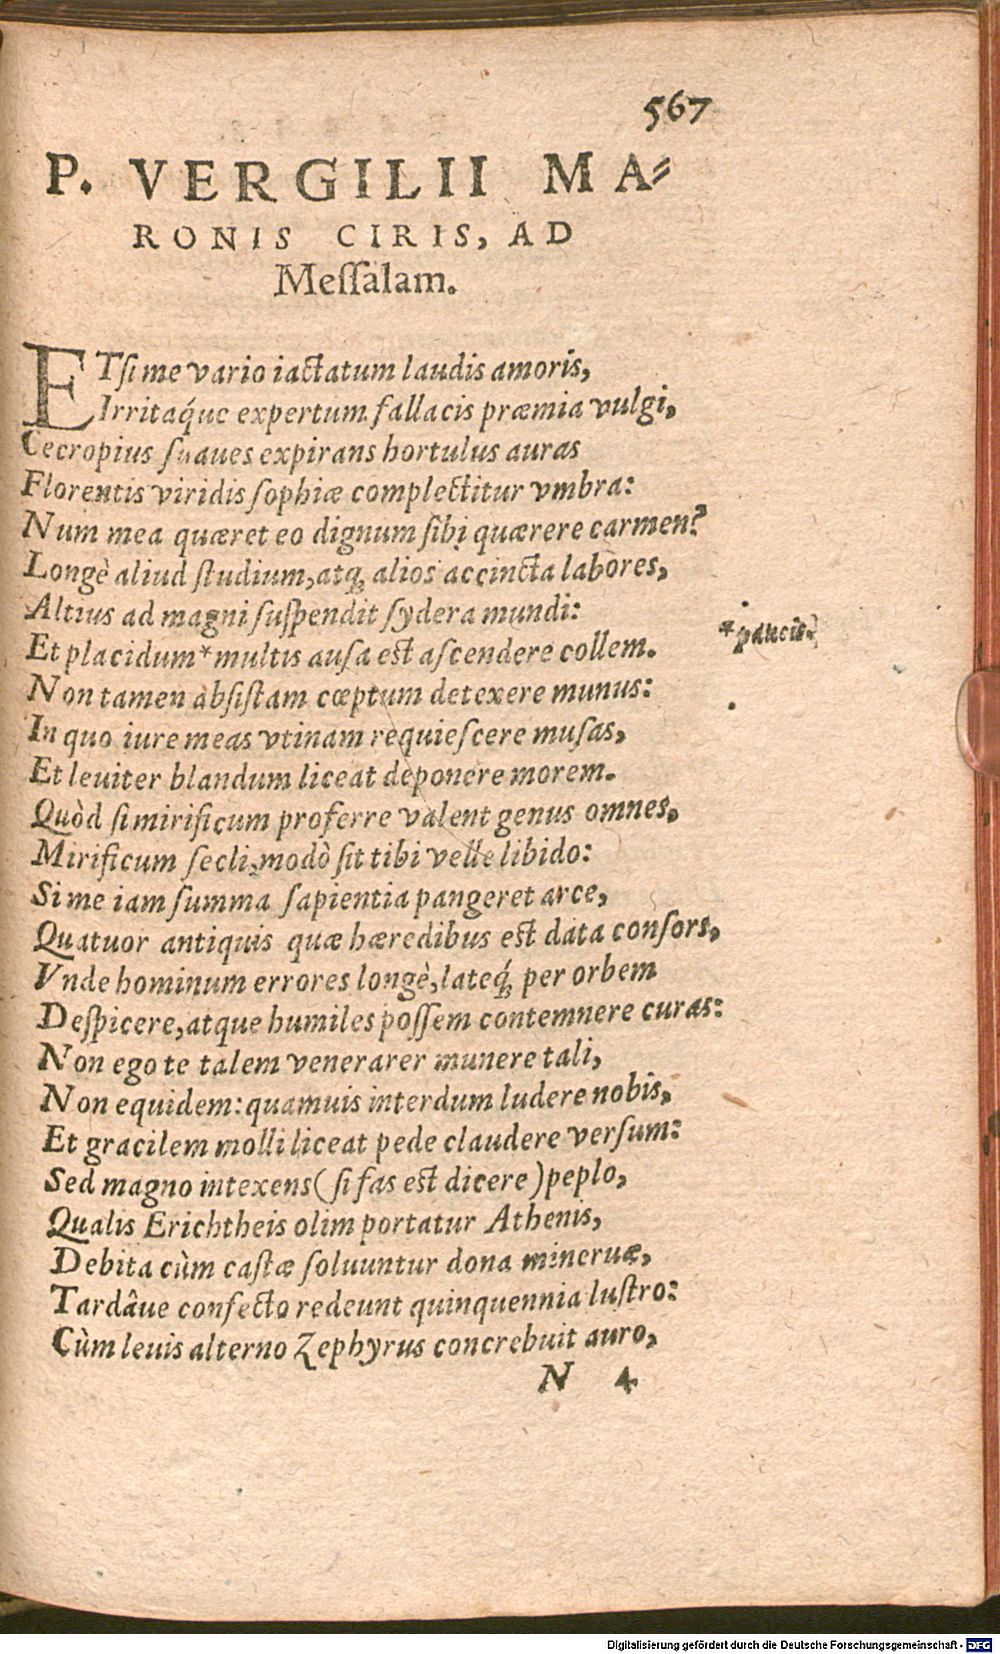 567
P. VERGILII MA=
RONIS CIRIS, AD
Meſſalam.
ETſi me vario iactatum laudis amoris,
Irritaq́ue expertum fallacis præmia vulgi,
Cecropius ſuaues expirans hortulus auras
Florentis viridis ſophiæ complectitur vmbra:
Num mea quæret eo dignum ſibi quærere carmen?
Longè aliud ſtudium, atq; alios accincta labores,
Altius ad magni ſuſpendit ſydera mundi:
Et placidum*multis auſa est aſcendere collem.
*paucis.
Non tamen abſiſtam cœptum detexere munus:
In quo iure meas vtinam requieſcere muſas,
Et leuiter blandum liceat deponere morem.
Quòd ſi mirificum proferre valent genus omnes,
Mirificum ſecli, modò ſit tibi velle libido:
Si me iam ſumma ſapientia pangeret arce,
Quatuor antiquis quæ hæredibus est data conſors,
Vnde hominum errores longè, lateq́; per orbem
Deſpicere, atque humiles poſſem contemnere curas:
Non ego te talem venerarer munere tali,
Non equidem: quamuis interdum ludere nobis,
Et gracilem molli liceat pede claudere verſum:
Sed magno intexens (ſi fas est dicere) peplo,
Qualis Erichtheis olim portatur Athenis,
Debita cùm caſtæ ſoluuntur dona mineruæ,
Tardâue confecto redeunt quinquennia luſtro:
Cùm leuis alterno Zephyrus concrebuit auro,
N 4
Digitalisierung gefördert durch die Deutsche Forschungsgemeinschaft - DFG